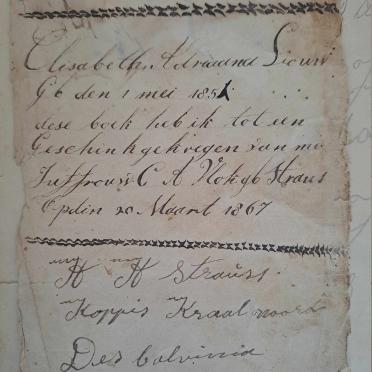 Elisabeth Adriaana Louw
Gb den 1 mei 1851
dese boek heb ik tot een
Geschink gekregen van mi
Juffrouw C A Straus
Opdin 20 Maart 1867
A A Strauss
Koppis Kraal noord
Des Calvinia